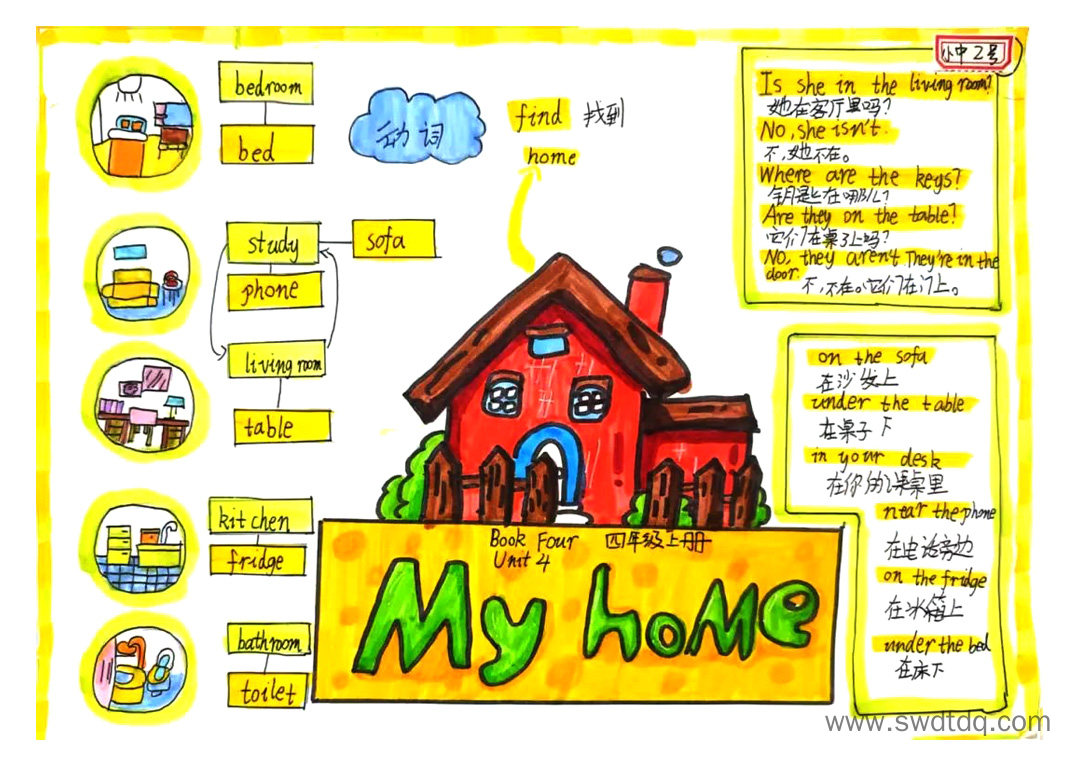 bedroom
bed
study
sofa
phone
living room
table
kitchen
fridge
bathroom
toilet
动词
find 找到
home
小中2号
Is she in the living room?
她在客厅里吗?
No, she isn't.
不,她不在。
Where are the keys?
钥匙在哪儿?
Are they on the table?
它们在桌子上吗?
No, they aren't They're in the
door.
不,不在。它们在门上。
on the sofa
在沙发上
under the table
在桌子下
in your desk
在你的课桌里
near the phone
在电话旁边
on the fridge
在冰箱上
under the bed
在床下
Book Four 四年级上册
Unit 4
My home
www.swdtdq.com